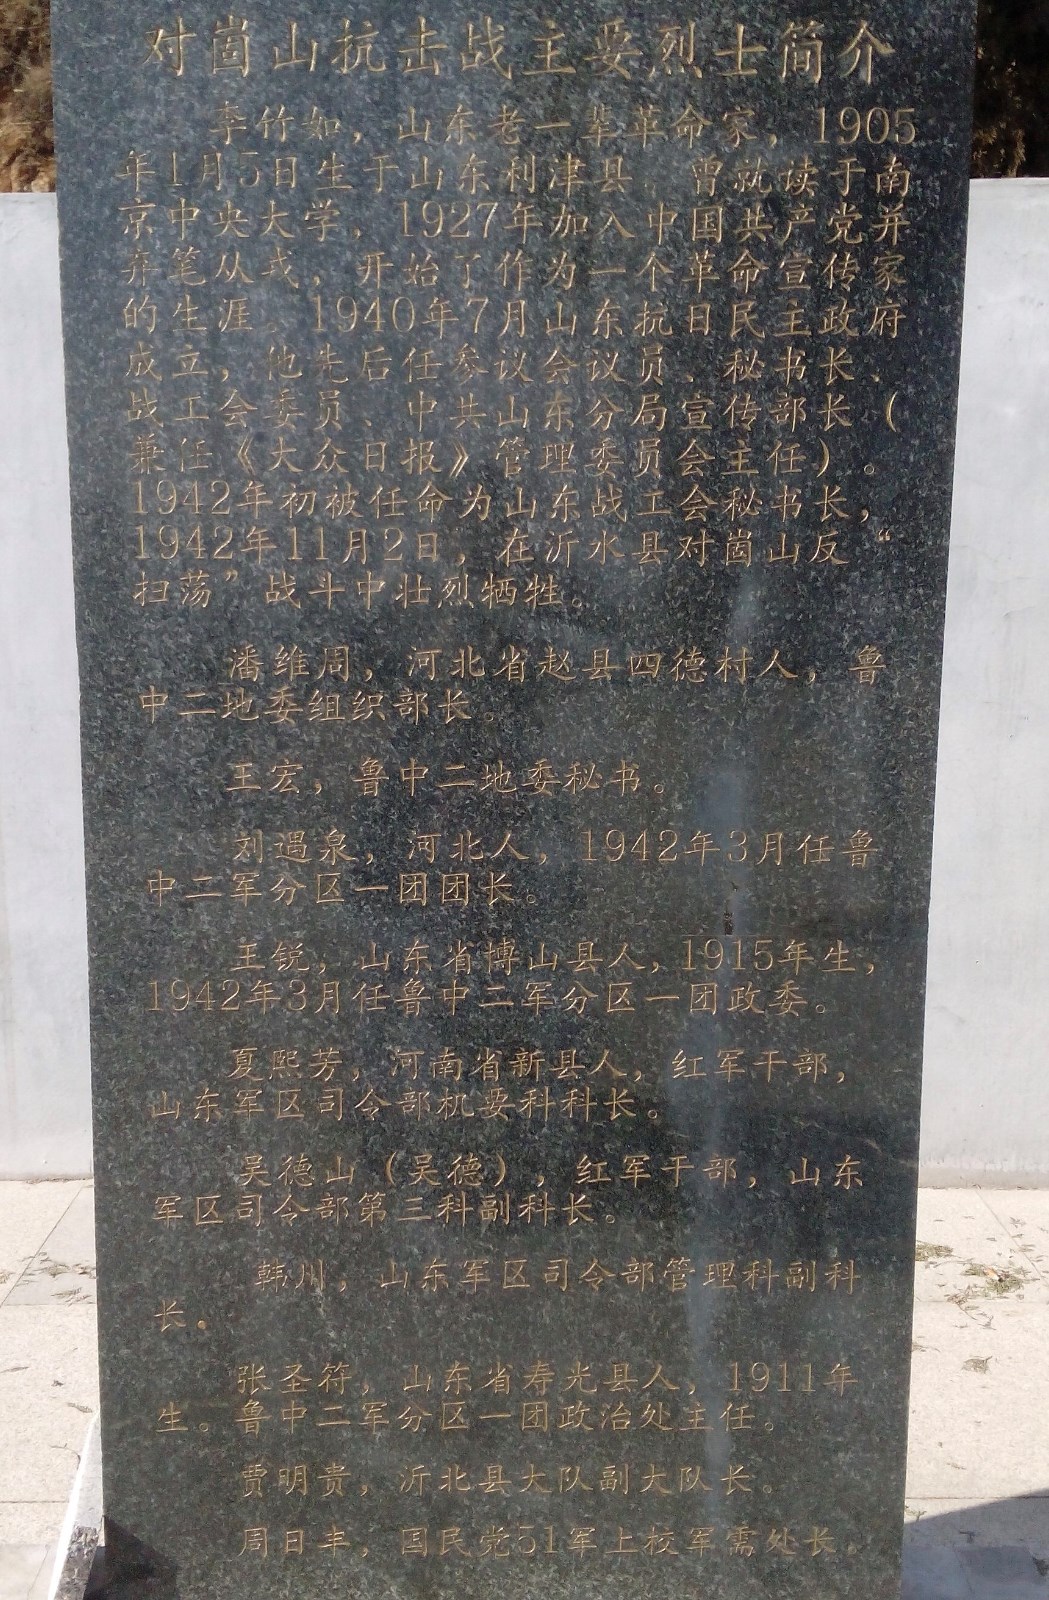 对崮山抗击战主要烈士简介
李竹如，山东老一辈革命家，1905
年1月5日生于山东利津县，曾就读于南
京中央大学，1927年加入中国共产党并
弃笔从戎，开始了作为一个革命宣传家
的生涯。1940年7月山东抗日民主政府
成立，他先后任参议会议员、秘书长、
战工会委员、中共山东分局宣传部长（
兼任《大众日报》管理委员会主任）。
1942年初被任命为山东战工会秘书长，
1942年11月2日，在沂水县对崮山反“
扫荡”战斗中壮烈牺牲。
潘维周，河北省赵县四德村人，鲁
中二地委组织部长。
王宏，鲁中二地委秘书。
刘遇泉，河北人，1942年3月任鲁
中二军分区一团团长。
王锐，山东省博山县人，1915年生，
1942年3月任鲁中二军分区一团政委。
夏熙芳，河南省新县人，红军干部，
山东军区司令部机要科科长。
吴德山（吴德），红军干部，山东
军区司令部第三科副科长。
韩川，山东军区司令部管理科副科
长。
张圣符，山东省寿光县人，1911年
生。鲁中二军分区一团政治处主任。
贾明贵，沂北县大队副大队长。
周日丰，国民党51军上校军需处长。